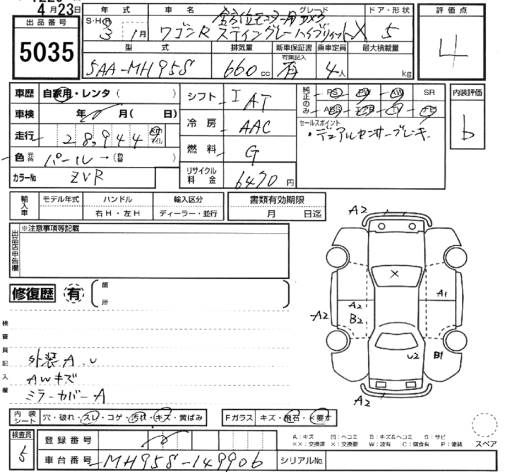 4月23日
出品番号
5035
年式 グレード ドア・形状
S・H R 3年 1月 ワゴンR スティングレー ハイブリッドX 5
評価点
4
型式 排気量 新車保証書 乗車定員 最大積載量
有無記入
5AA-MH95S 660cc 有 4人 kg
車歴 自家用・レンタ( )
車検 年 月( 日)
走行 28,944
色 パール→
カラーNo ZVR
シフト IAT
冷房 AAC
燃料 G
リサイクル料金 6490円
純正のみ
SR
セールスポイント
・デュアルセンサーブレーキ
内装評価
b
輸入車
モデル年式 ハンドル 輸入区分
右H・左H ディーラー・並行
書類有効期限
月 日迄
※注意事項等記載
出品店申告欄
修復歴 有 箇所
検査員記入欄
外装A.U
AWキズ
ミラーカバーA
A2
A2
A2
B2
A1
B1
U2
A2
X
内装シート 穴・破れ・スレ・コゲ・汚れ・キズ・黄ばみ
Fガラス キズ・飛石・
A:キズ U:ヘコミ B:キズ&ヘコミ S:サビ
XX:交換済 X:交換要 W:波有 C:腐食有 P:塗装
スペア
検査員 5
登録番号
車台番号 MH95S-149906
シリアルNo.